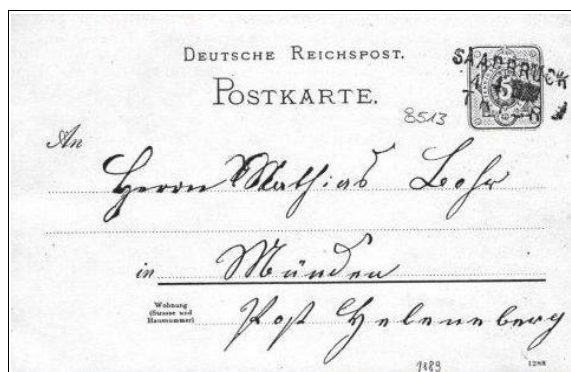 DEUTSCHE REICHSPOST.
SAARBRÜCK
POSTKARTE.
8513
An
Herrn Mathias Lohr
in Münden
Wohnung
(Strasse und
Hausnummer)
Post Helenenberg
1189
1288